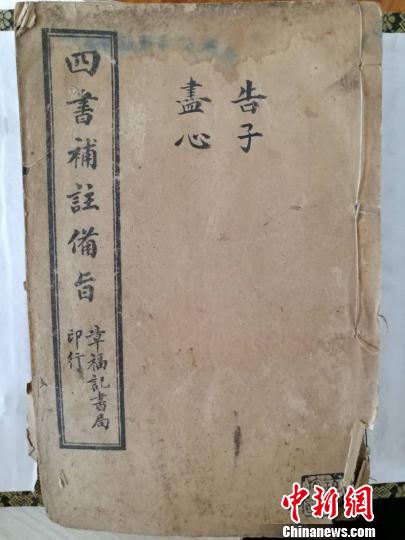 告子
盡心
四書補註備旨
章福記書局
印行
中新网
Chinanews.com